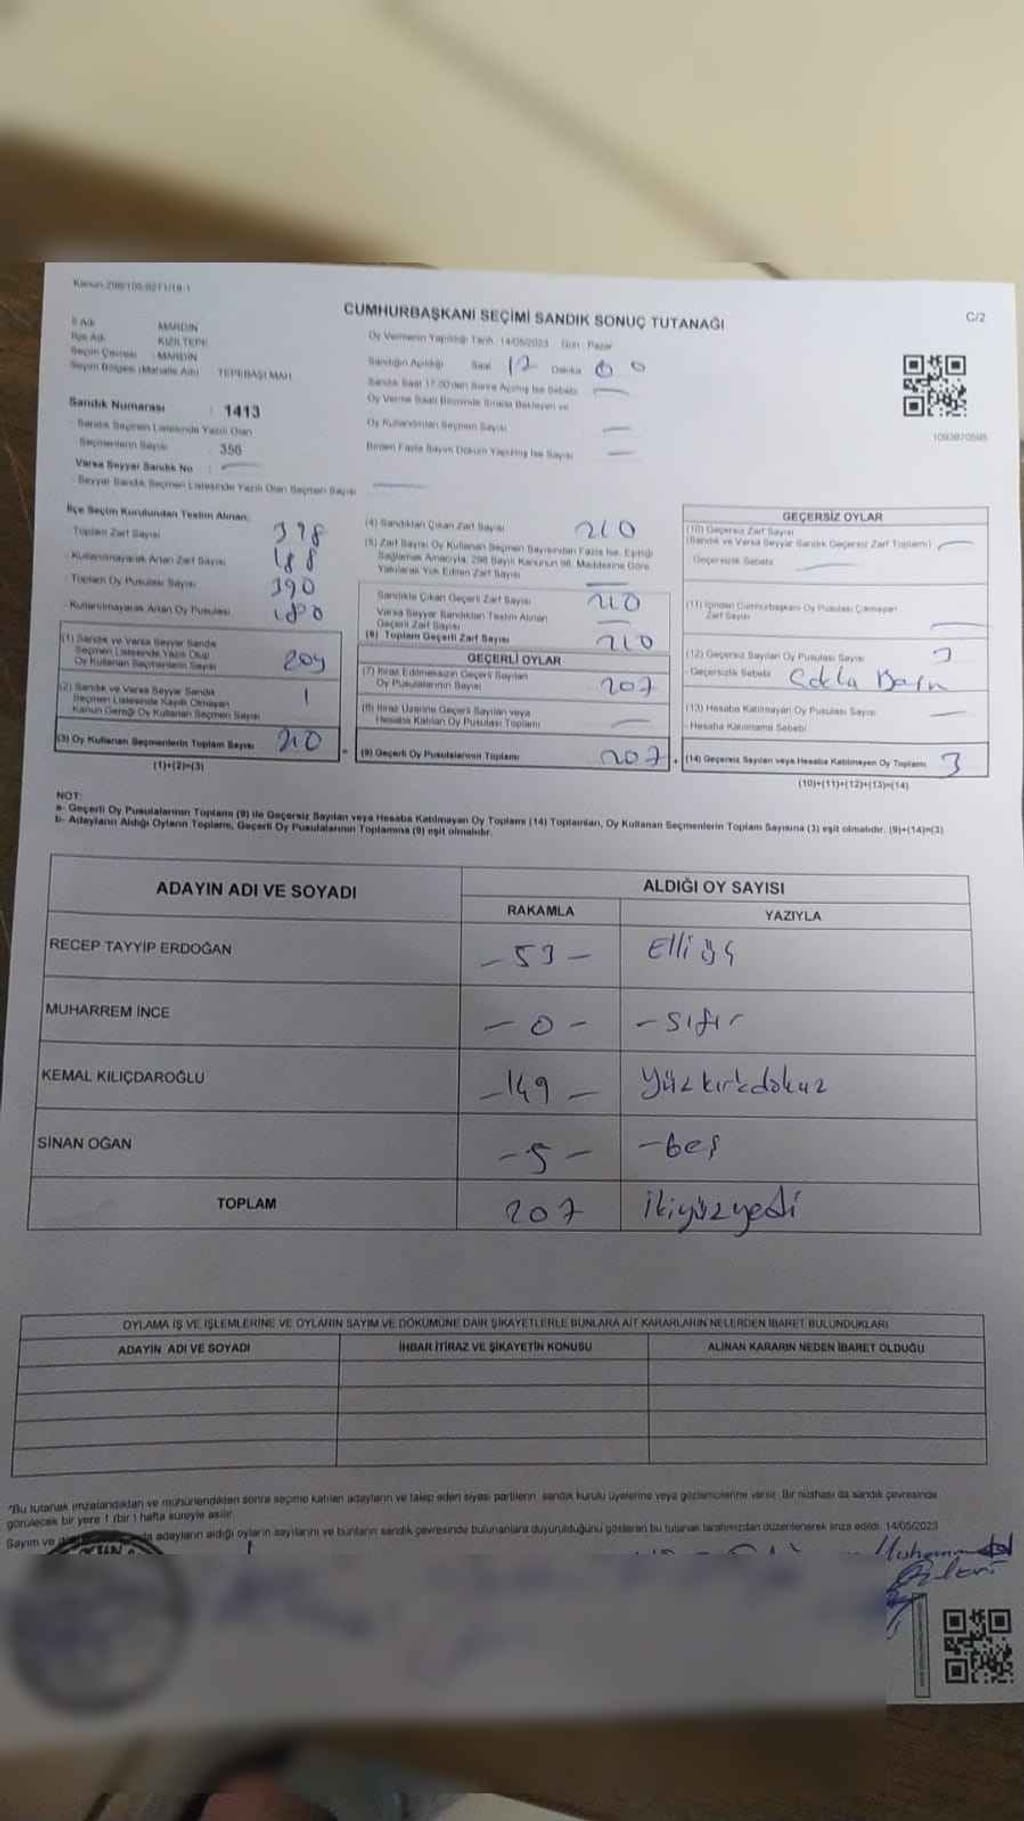 CUMHURBAŞKANI SEÇİMİ SANDIK SONUÇ TUTANAĞI
C/2
Oy Vermenin Yapıldığı Tarih: 14/05/2023 Gün: Pazar
İl Adı MARDİN
İlçe Adı KIZILTEPE
Seçim Çevresi MARDİN
Seçim Bölgesi (Mahalle Adı) TEPEBAŞI MAH.
Sandığın Açıldığı Saat
Oy Kullandırılan Seçmen Sayısı
Birden Fazla Sayım Döküm Yapılmış İse Sayısı
Sandık Numarası : 1413
Sandık Seçmen Listesinde Yazılı Olan
Seçmenlerin Sayısı : 356
Varsa Seyyar Sandık No :
Seyyar Sandık Seçmen Listesinde Yazılı Olan Seçmen Sayısı
İlçe Seçim Kurulundan Teslim Alınan:
Toplam Zarf Sayısı 398
Kullanılmayarak Artan Zarf Sayısı 188
Toplam Oy Pusulası Sayısı 390
Kullanılmayarak Artan Oy Pusulası 180
(1) Sandık ve Varsa Seyyar Sandık
Seçmen Listesinde Yazılı Olup
Oy Kullanan Seçmenlerin Sayısı 209
(2) Sandık ve Varsa Seyyar Sandık
Seçmen Listesinde Kayıtlı Olmayan
Kanun Gereği Oy Kullanan Seçmen Sayısı 1
(3) Oy Kullanan Seçmenlerin Toplam Sayısı 210
(1)+(2)=(3)
(4) Sandıktan Çıkan Zarf Sayısı 210
(5) Zarf Sayısı Oy Kullanan Seçmen Sayısından Fazla İse, Eşitliği
Sağlamak Amacıyla, 298 Sayılı Kanunun 98. Maddesine Göre
Yakılarak Yok Edilen Zarf Sayısı
Sandıkta Çıkan Geçerli Zarf Sayısı 210
Varsa Seyyar Sandıktan Teslim Alınan
Geçerli Zarf Sayısı
(6) Toplam Geçerli Zarf Sayısı 210
GEÇERLİ OYLAR
(7) İtiraz Edilmeksizin Geçerli Sayılan
Oy Pusulalarının Sayısı 207
(8) İtiraz Üzerine Geçerli Sayılan veya
Hesaba Katılan Oy Pusulası Toplamı
(9) Geçerli Oy Pusulalarının Toplamı 207
GEÇERSİZ OYLAR
(10) Geçersiz Zarf Sayısı
(Sandık ve Varsa Seyyar Sandık Geçersiz Zarf Toplamı)
Geçersizlik Sebebi
(11) İçinden Cumhurbaşkanı Oy Pusulası Çıkmayan
Zarf Sayısı
(12) Geçersiz Sayılan Oy Pusulası Sayısı 3
- Geçersizlik Sebebi
(13) Hesaba Katılmayan Oy Pusulası Sayısı
- Hesaba Katılmama Sebebi
(14) Geçersiz Sayılan veya Hesaba Katılmayan Oy Toplamı 3
(10)+(11)+(12)+(13)=(14)
NOT:
a- Geçerli Oy Pusulalarının Toplamı (9) ile Geçersiz Sayılan veya Hesaba Katılmayan Oy Toplamı (14) Toplamları, Oy Kullanan Seçmenlerin Toplam Sayısına (3) eşit olmalıdır. (9)+(14)=(3)
b- Adayların Aldığı Oyların Toplamı, Geçerli Oy Pusulalarının Toplamına (9) eşit olmalıdır.
ADAYIN ADI VE SOYADI ALDIĞI OY SAYISI
RAKAMLA YAZIYLA
RECEP TAYYİP ERDOĞAN - 53 - Elli üç
MUHARREM İNCE - 0 - - sıfır
KEMAL KILIÇDAROĞLU - 149 - Yüzkırkdokuz
SİNAN OĞAN - 5 - - beş
TOPLAM 207 ikiyüzyedi
OYLAMA İŞ VE İŞLEMLERİNE VE OYLARIN SAYIM VE DÖKÜMÜNE DAİR ŞİKAYETLERLE BUNLARA AİT KARARLARIN NELERDEN İBARET BULUNDUKLARI
ADAYIN ADI VE SOYADI İHBAR İTİRAZ VE ŞİKAYETİN KONUSU ALINAN KARARIN NEDEN İBARET OLDUĞU
*Bu tutanak imzalandıktan ve mühürlendikten sonra seçime katılan adayların ve talep eden siyasi partilerin sandık kurulu üyelerine veya gözlemcilerine verilir. Bir nüshası da sandık çevresinde
görülecek bir yere 1 (bir) hafta süreyle asılır.
Sayım ve adayların aldığı oyların sayılarını ve bunların sandık çevresinde bulunanlara duyurulduğunu gösteren bu tutanak tarafımızdan düzenlenerek imza edildi. 14/05/2023